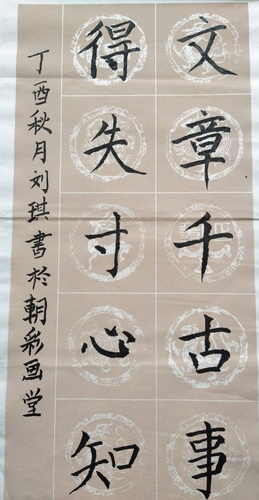 文章千古事
得失寸心知
丁酉秋月刘琪書於朝彩画堂